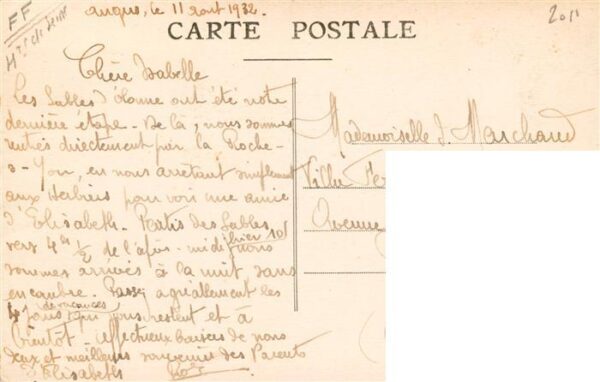 FF
2011
augus, le 11 août 1932.
CARTE POSTALE
Chère Isabelle
Les Sables d'olonne ont été notre
dernière étape - De là, nous sommes
rentrés directement par la Roche-
s- Yon, en nous arretant simplement
aux Herbiers pour voir une amie
d'Elisabeth. Partis des Sables
vers 4 hs 1/2 de l'après-midi hier 10, nous
sommes arrivés à la nuit, sans
encombre. Passez agréablement les
4 jours de vacances qui vous restent et à
bientôt - affectueux baisers de nous
deux et meilleurs souvenirs des Parents
d'Elisabeth
Mademoiselle J. Marchand
Villa
Avenue